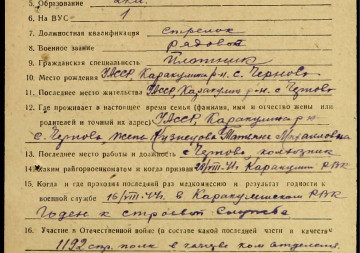 5. Образование
6. На ВУС 1
7. Должностная квалификация стрелок
8. Военное звание рядовой
9. Гражданская специальность Плотник
10. Место рождения р-н. с. Чернова
11. Последнее место жительства р-н. с. Чернова
12. Где проживает в настоящее время семья (фамилия, имя и отчество жены или
родителей и точный их адрес)
с. Чернова, жене Кузнецова Татьяне Михайловне
13. Последнее место работы и должность с. Чернова, колхозник
14. Каким райгорвоенкоматом и когда призван РВК
15. Когда и где проходил последний раз медкомиссию и результат годности к
военной службе 15/VIII-44г. в РВК
Годен к строевой службе
16. Участие в Отечественной войне (в составе какой последней части и в качестве
1192 стр. полк ком. отделения.